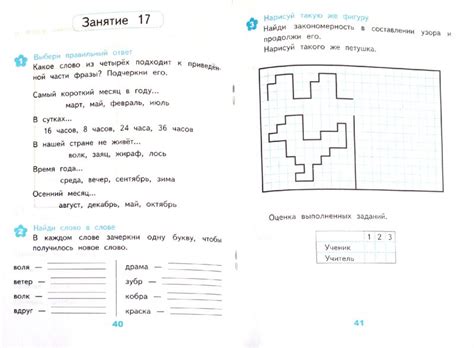 Занятие 17
1 Выбери правильный ответ
Какое слово из четырёх подходит к приведён-
ной части фразы? Подчеркни его.
Самый короткий месяц в году...
март, май, февраль, июль
В сутках...
16 часов, 8 часов, 24 часа, 36 часов
В нашей стране не живёт...
волк, заяц, жираф, лось
Время года...
среда, вечер, сентябрь, зима
Осенний месяц...
август, декабрь, май, октябрь
2 Найди слово в слове
В каждом слове зачеркни одну букву, чтобы
получилось новое слово.
воля — драма —
ветер — зубр —
волк — кобра —
вдруг — краска —
40
3 Нарисуй такую же фигуру
Найди закономерность в составлении узора и
продолжи его.
Нарисуй такого же петушка.
Оценка выполненных заданий.
1 2 3
Ученик
Учитель
41